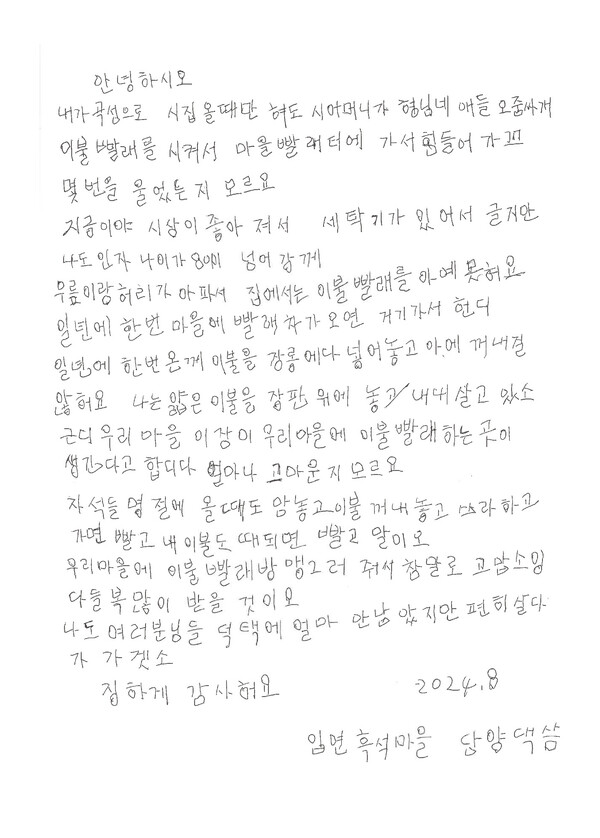 안녕하시오
내가 곡성으로 시집 올때만 혀도 시어머니가 형님네 애들 오줌싸개
이불 빨래를 시켜서 마을 빨래터에 가서 힘들어 가꼬
몇번을 울었는지 모르요
지금이야 시상이 좋아 져서 세탁기가 있어서 글지만
나도 인자 나이가 80이 넘어 강께
무릎이랑 허리가 아파서 집에서는 이불 빨래를 아예 못혀요
일년에 한번 마을에 빨래차가 오면 거기가서 헌디
일년에 한번 온께 이불을 장롱에다 넣어놓고 아에 꺼내질
않혀요 나는 얇은 이불을 장판 위에 놓고 내대 살고 있소
근디 우리 마을 이장이 우리마을에 이불 빨래 하는 곳이
생긴다고 합디다 얼마나 고마운지 모르요
자석들 명절에 올때도 암놓고 이불 꺼내 놓고 쓰라하고
가면 빨고 내 이불도 때되면 빨고 말이오
우리마을에 이불 빨래방 맹그러 줘서 참말로 고맙소잉
다들 복 많이 받을 것이오
나도 여러분님들 덕택에 얼마 안남았지만 편히 살다
가 가겟소
집하게 감사혀요 2024.8
입면 흑석마을 담양댁 씀